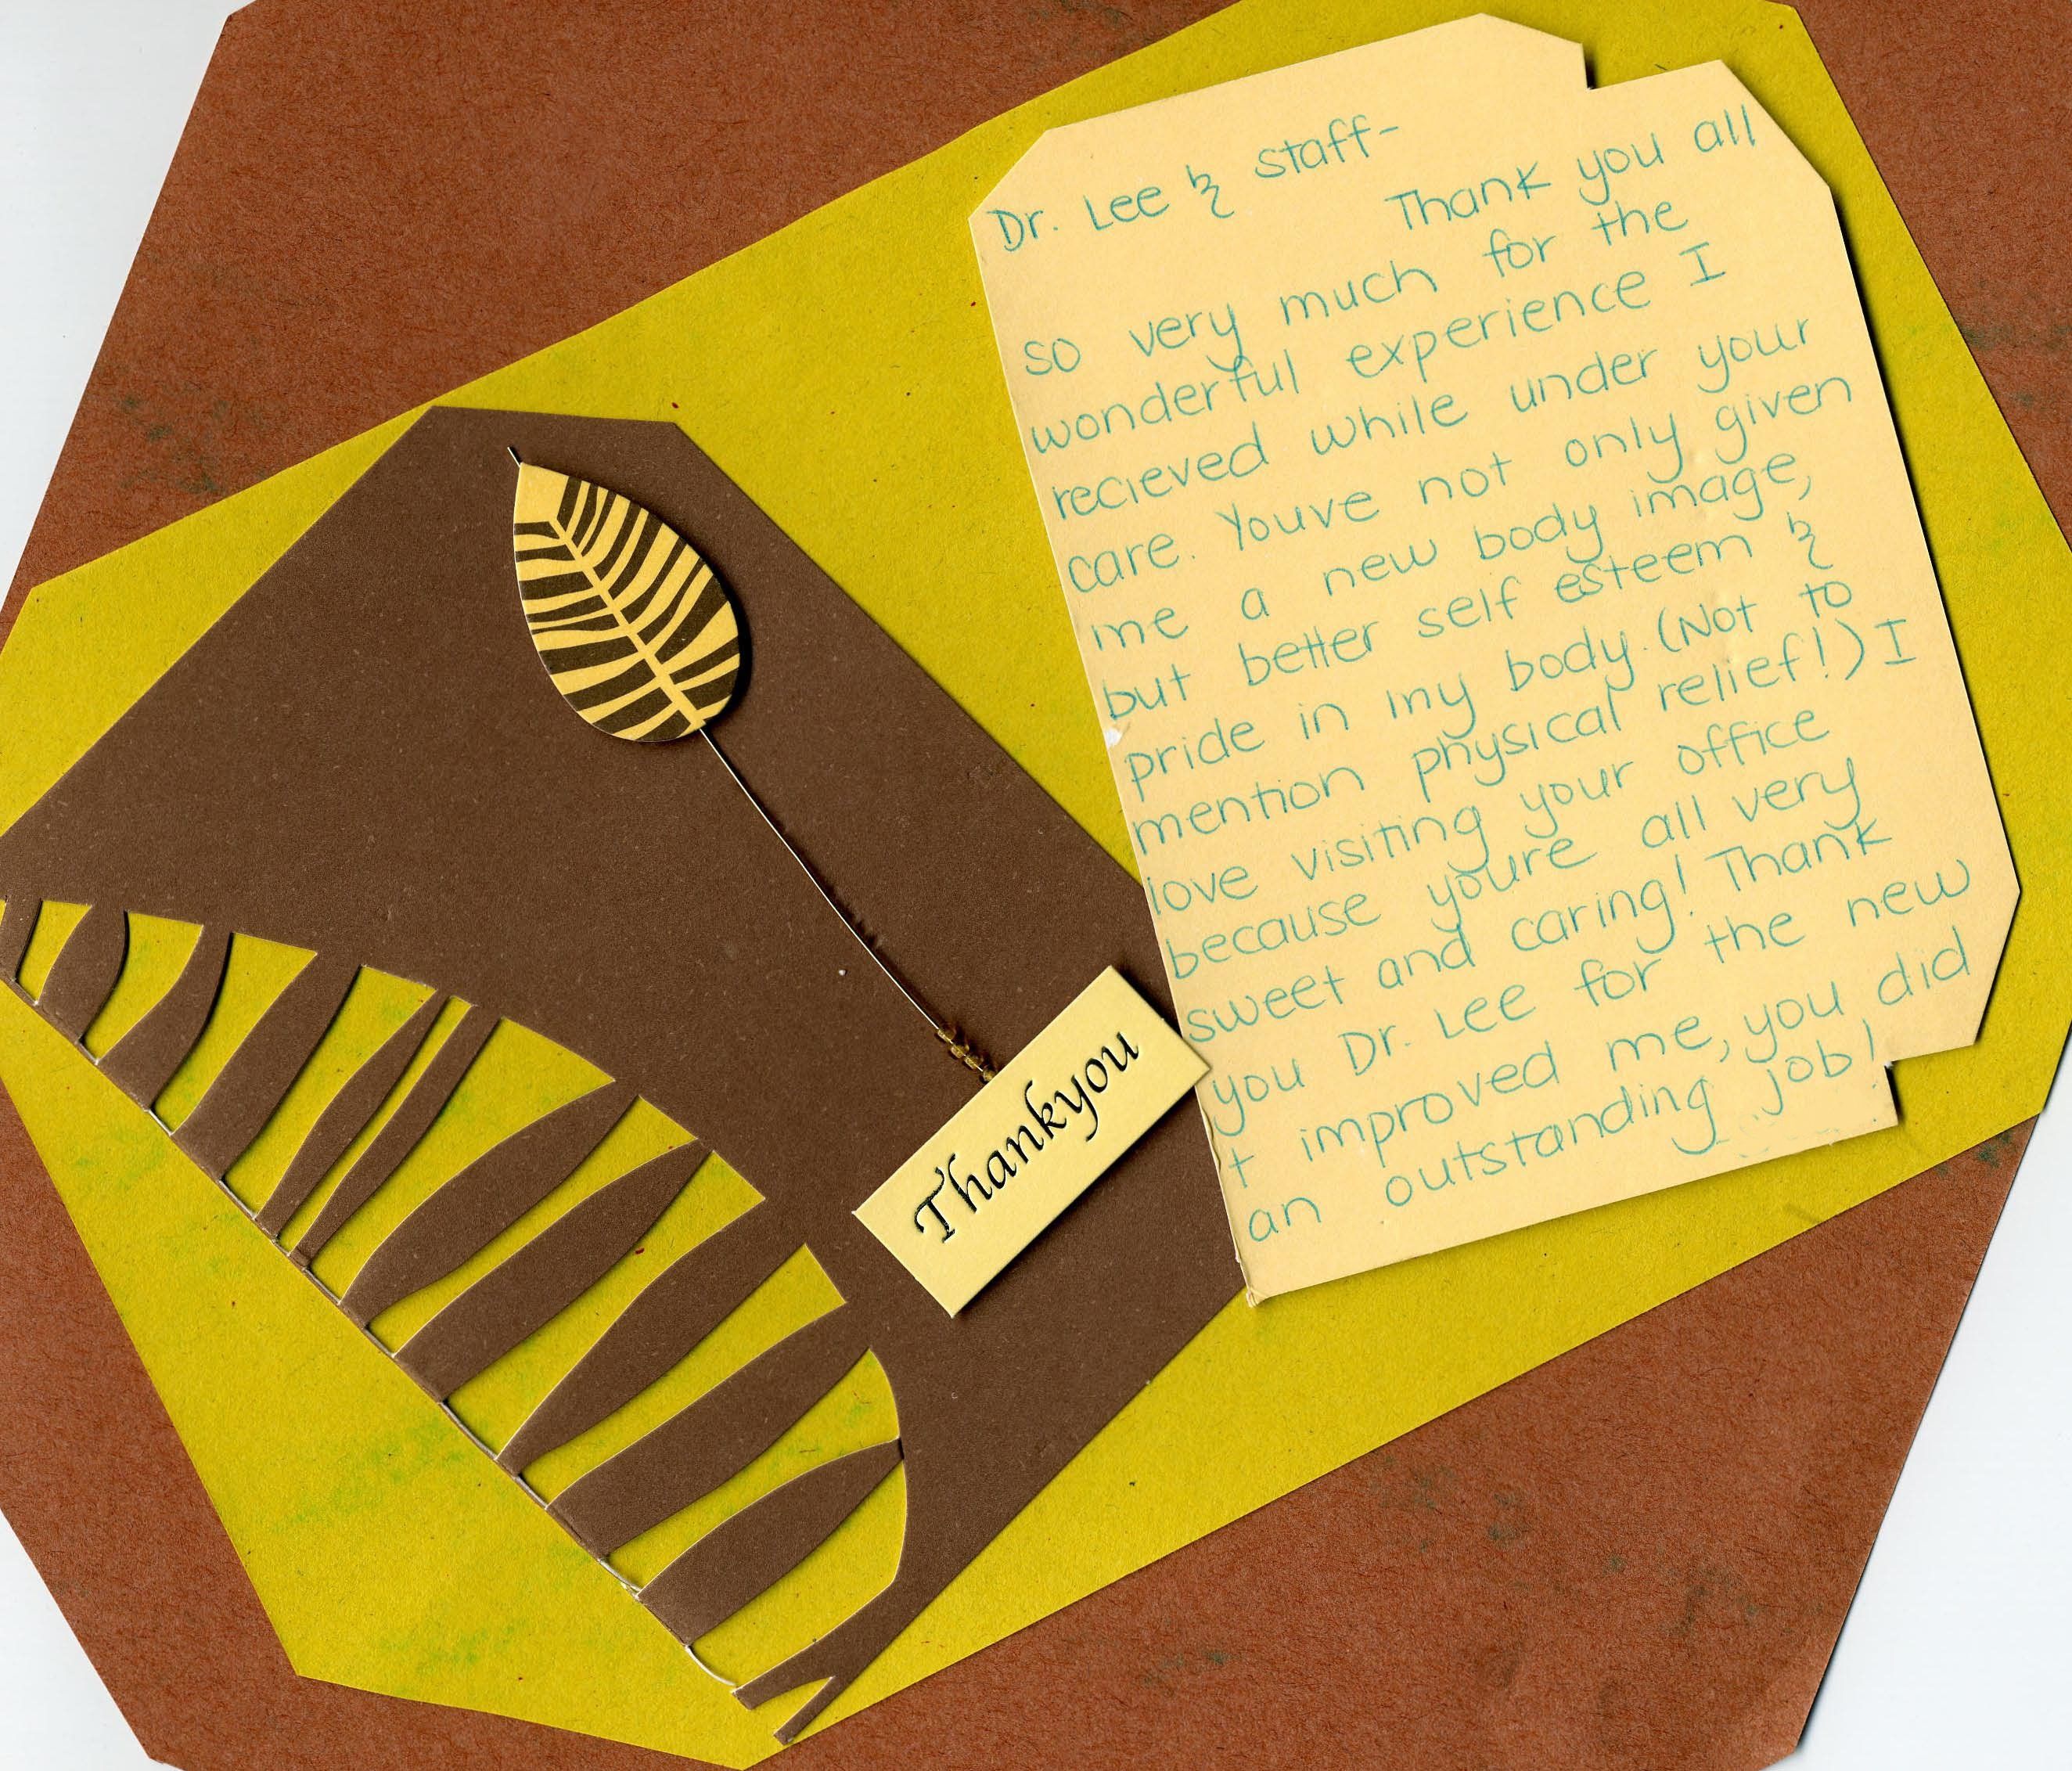 Dr. Lee & staff-
Thank you all
so very much for the
wonderful experience I
recieved while under your
care. Youve not only given
me a new body image,
but better self esteem &
pride in my body. (Not to
mention physical relief!) I
love visiting your office
because youre all very
sweet and caring! Thank
you Dr. Lee for the new
+ improved me, you did
an outstanding job!
Thankyou